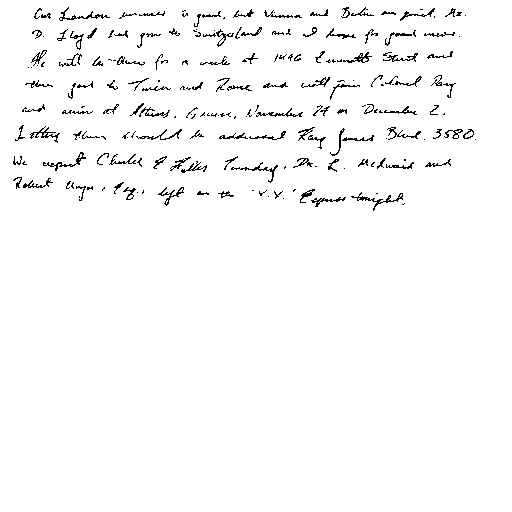 Our London business is good, but Vienna and Berlin are quiet. Mr.
D. Lloyd has gone to Switzerland and I hope for good news.
He will be there for a week at 1496 Zermott Street and
then goes to Turin and Rome and will join Colonel Parry
and arrive at Athens, Greece, November 27 or December 2.
Letters there should be addressed King James Blvd. 3580.
We expect Charles E. Fuller Tuesday. Dr. L. McQuaid and
Robert Unger, Esq., left on the 'Y.X.' Express tonight.